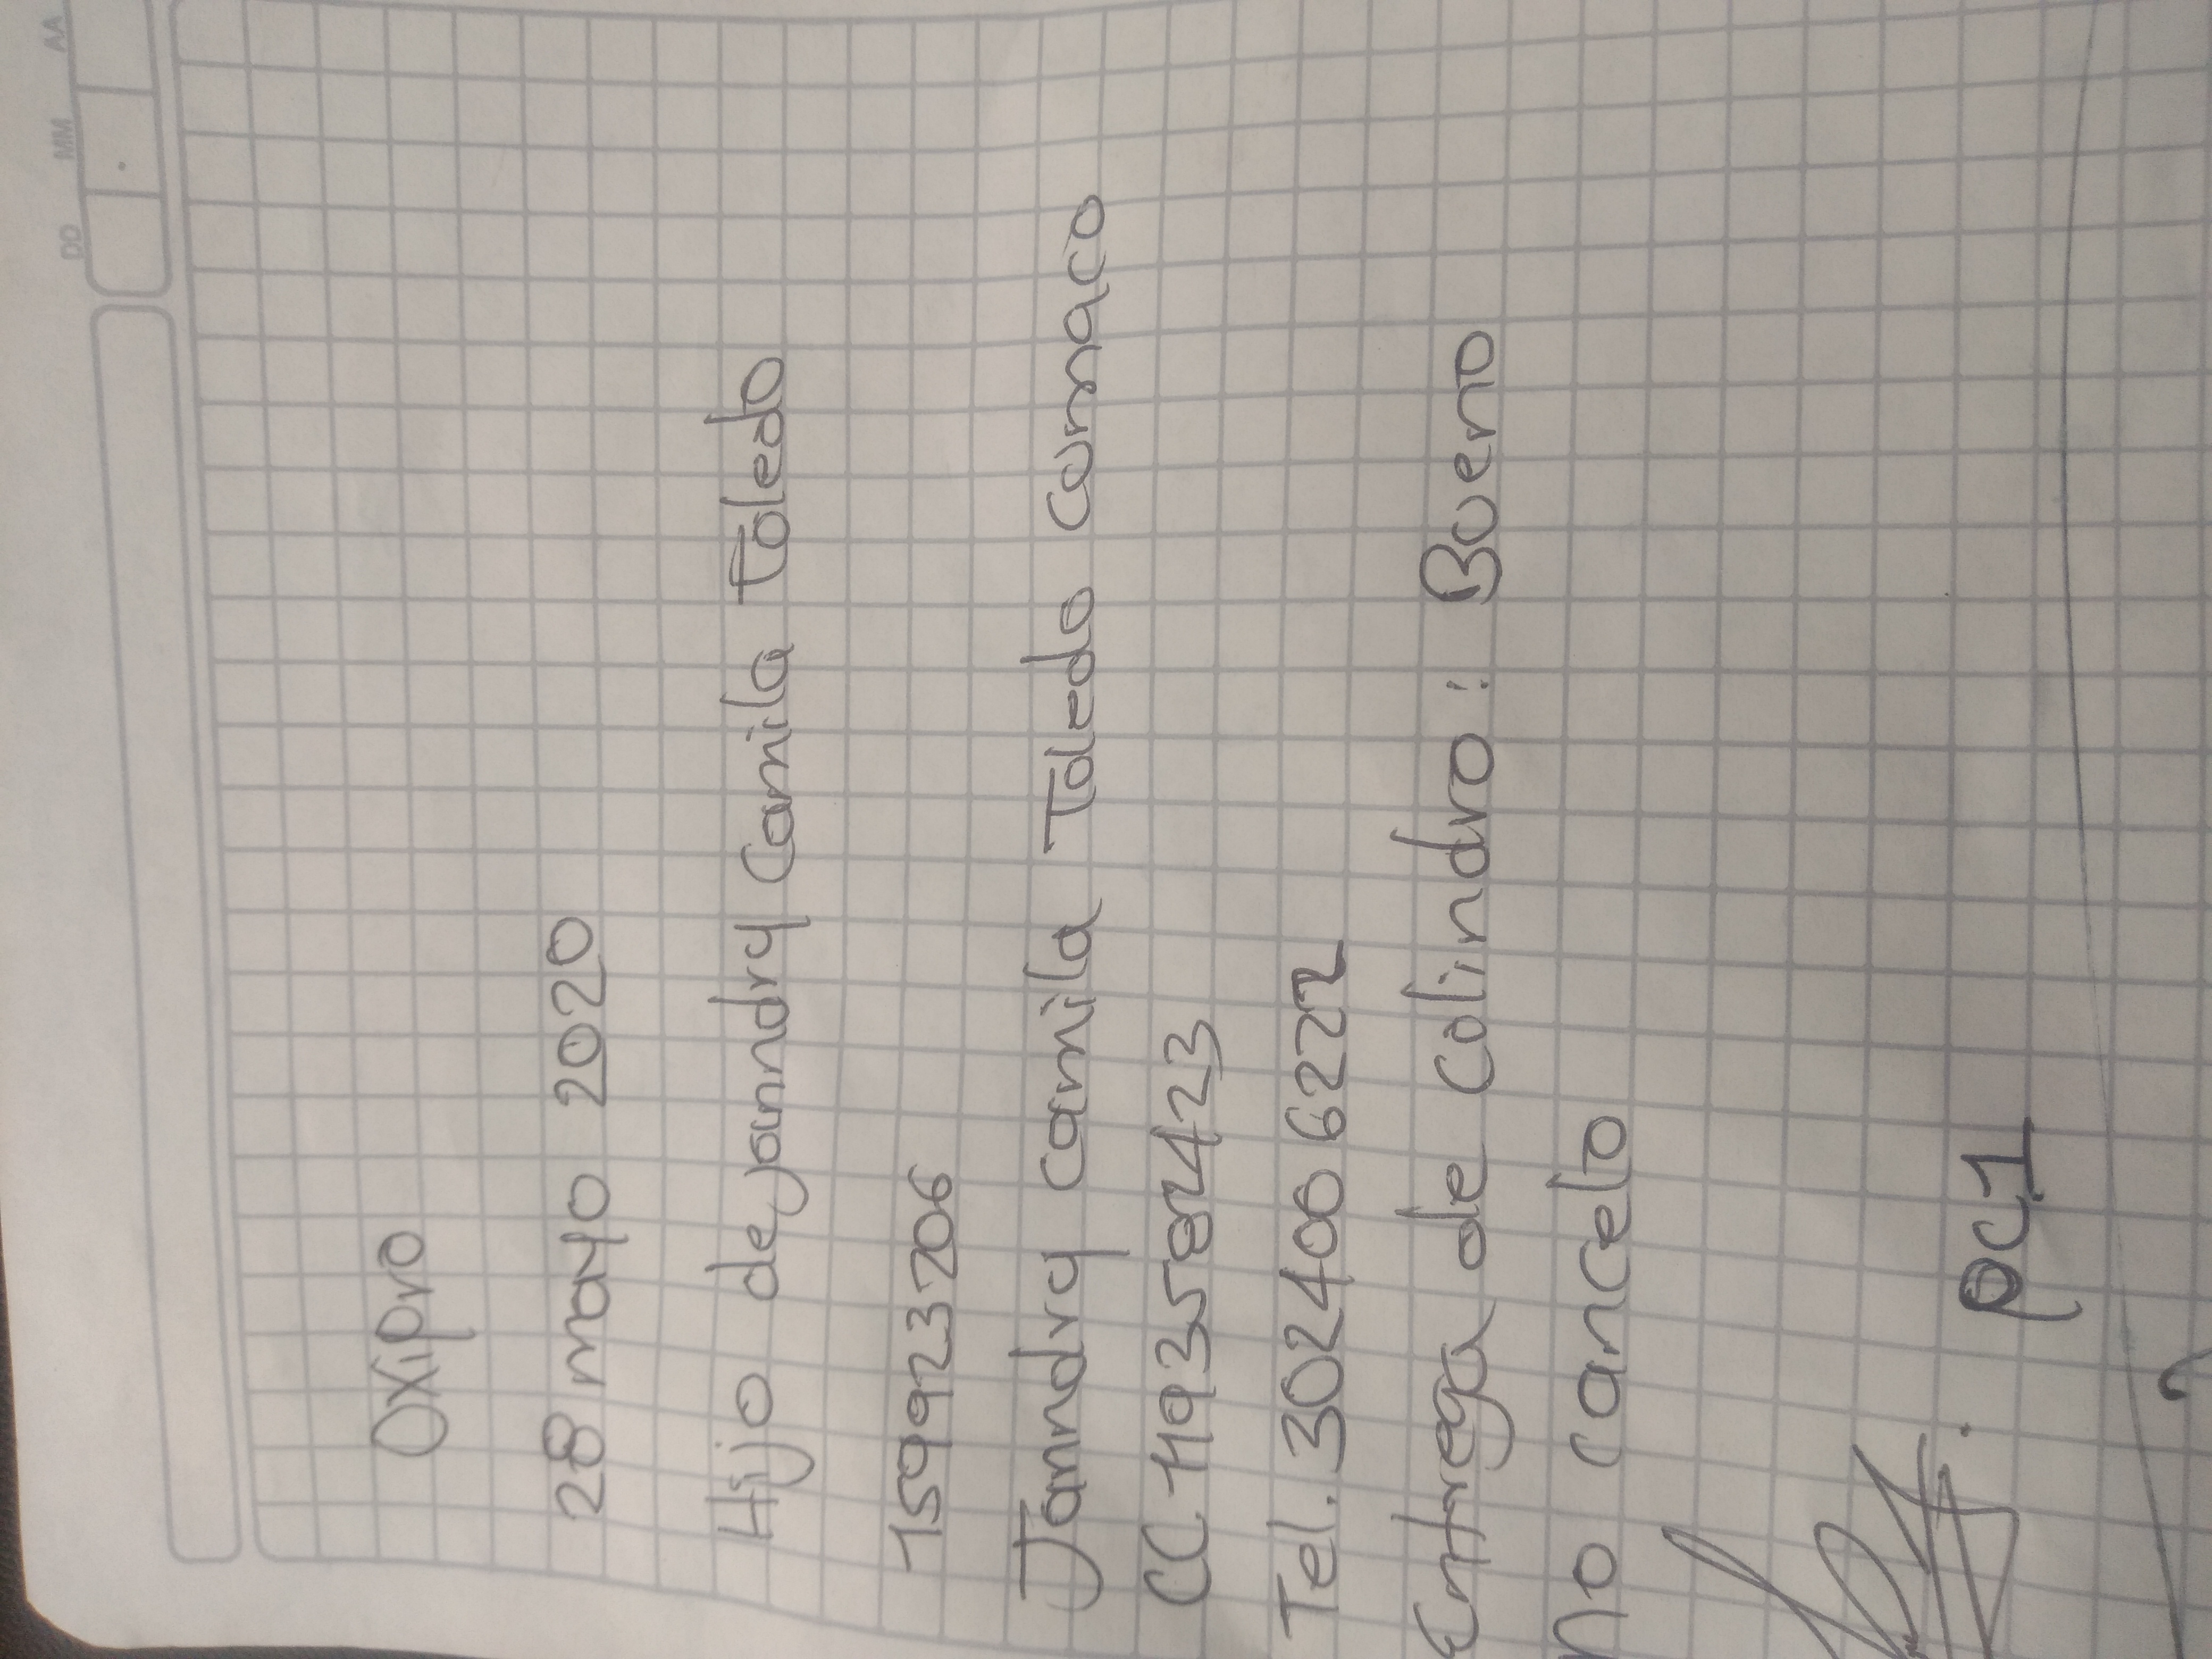 DD MM AA
Oxipro
28 mayo 2020
Hijo de Janndry Camila Toledo
159923206
Janndry Camila Toledo Camaco
CC. 1193582423
Tel. 302400 6222
Entrega de Colindro: Bueno
no cancelo
PC1